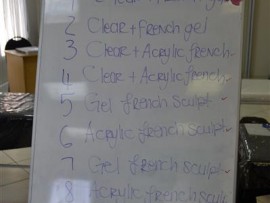 2 Clear + french gel
3 Clear + Acrylic french
4 Clear + Acrylic french
5 Gel french sculpt
6 Acrylic french sculpt
7 Gel french sculpt
8 Acrylic french